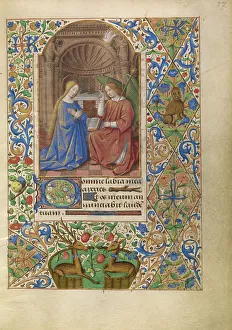 Domine labia mea
aperies
Et os meum an
nunciabit laudē
tuam